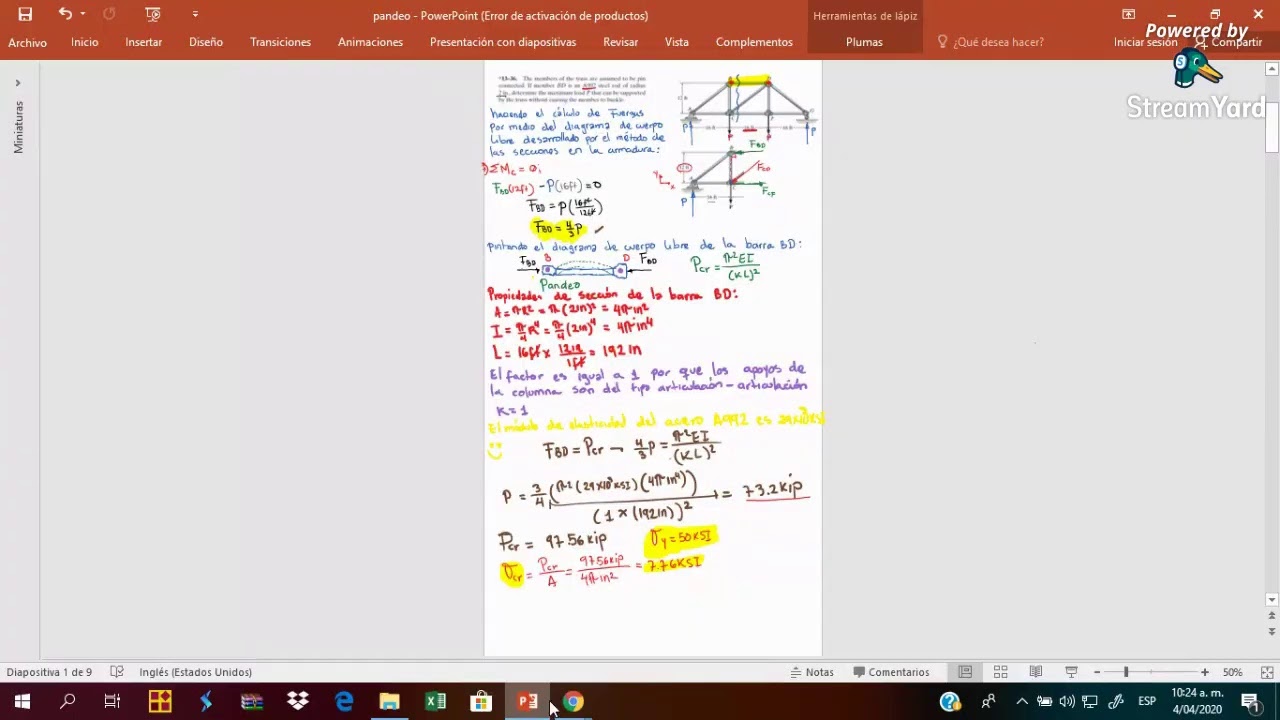 pandeo - PowerPoint (Error de activación de productos)
Herramientas de lápiz
Archivo Inicio Insertar Diseño Transiciones Animaciones Presentación con diapositivas Revisar Vista Complementos Plumas ¿Qué desea hacer? Iniciar sesión Compartir
Powered by
StreamYard
Miniaturas
*13-36. The members of the truss are assumed to be pin
connected. If member BD is an A992 steel rod of radius
2 in., determine the maximum load P that can be supported
by the truss without causing the member to buckle.
haciendo el cálculo de Fuerzas
por medio del diagrama de cuerpo
libre desarrollado por el método de
las secciones en la armadura:
ΣMc = 0;
FBD(12ft) - P(16ft) = 0
FBD = P(16ft/12ft)
FBD = 4/3 P
P
P
12 ft
FBD
FCD
FCF
Y
X
P
16 ft
pintando el diagrama de cuerpo libre de la barra BD:
FBD B D FBD
Pandeo
Pcr = π²EI/(KL)²
Propiedades de sección de la barra BD:
A = πR² = π(2in)² = 4π in²
I = π/4 R⁴ = π/4 (2in)⁴ = 4π in⁴
L = 16ft x 12in/1ft = 192in
El factor es igual a 1 por que los apoyos de
la columna son del tipo articulación - articulación
K = 1
El módulo de elasticidad del acero A992 es 29x10³ KSI
FBD = Pcr → 4/3 P = π²EI/(KL)²
P = 3/4 (π² (29x10³ KSI) (4π in⁴))/(1 x (192in))² = 73.2 kip
Pcr = 97.56 kip
σy = 50 KSI
σcr = Pcr/A = 97.56 kip/4π in² = 7.76 KSI
Diapositiva 1 de 9 Inglés (Estados Unidos) Notas Comentarios 50%
ESP
10:24 a. m.
4/04/2020